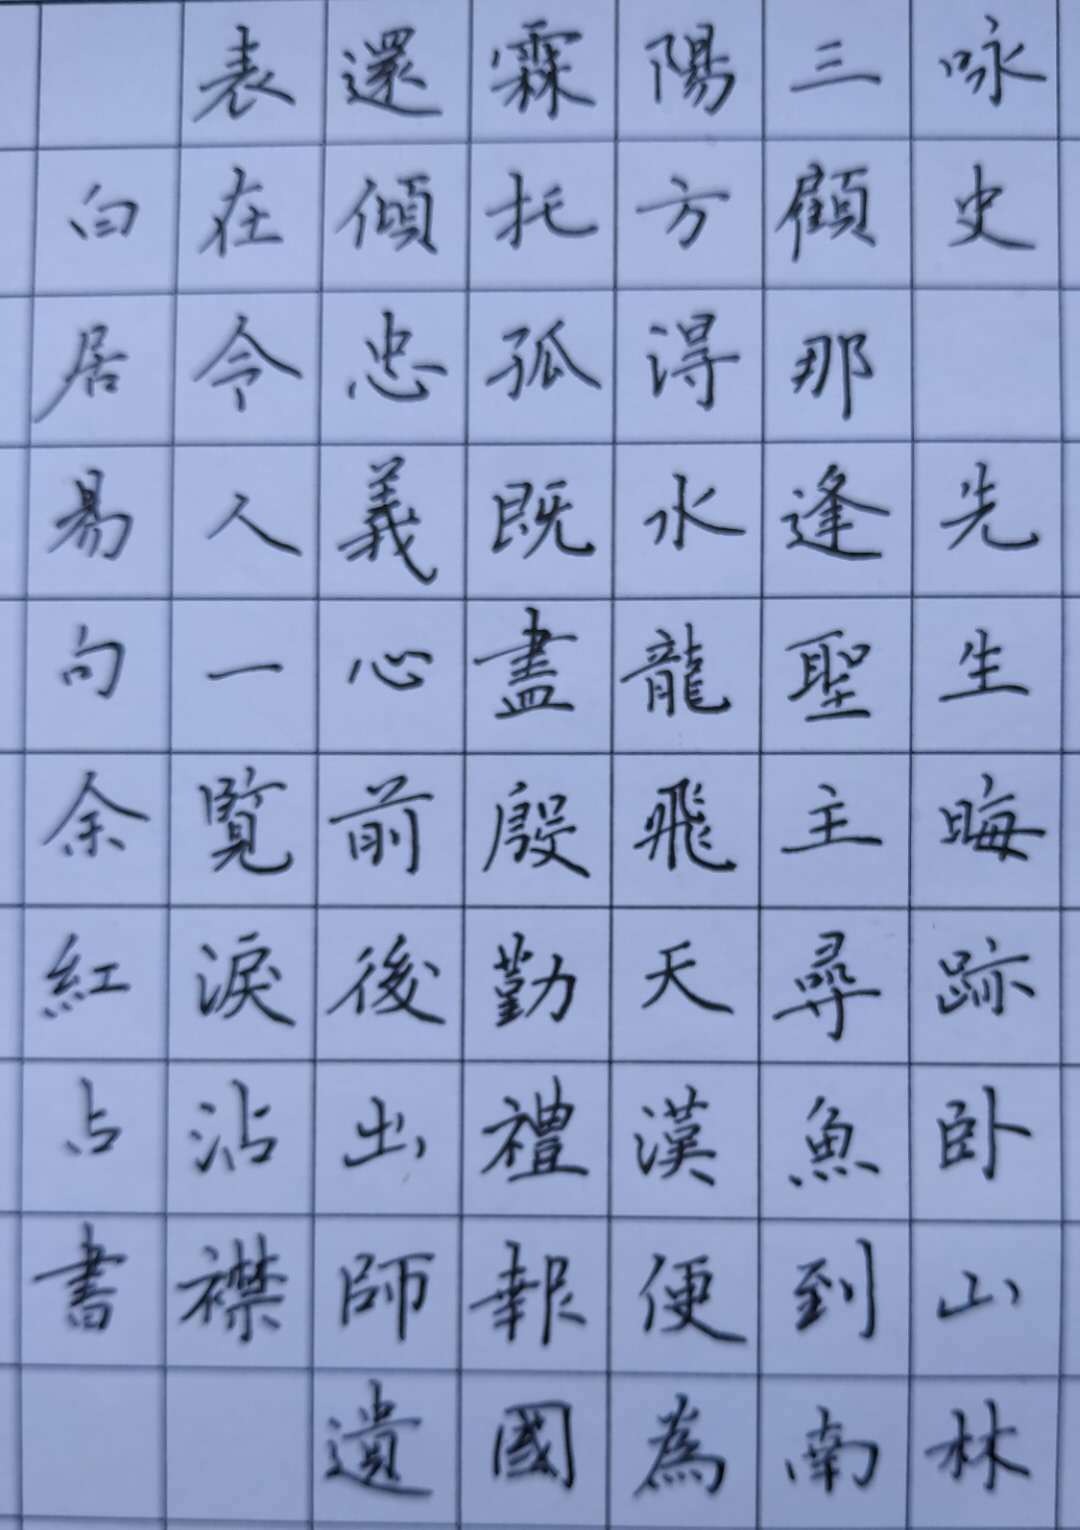 咏史 先生晦跡卧山林
三顧那逢聖主尋魚到南
陽方得水龍飛天漢便為
霖托孤既盡殷勤禮報國
還傾忠義心前後出師遺
表在令人一覽淚沾襟
白居易句余紅占書